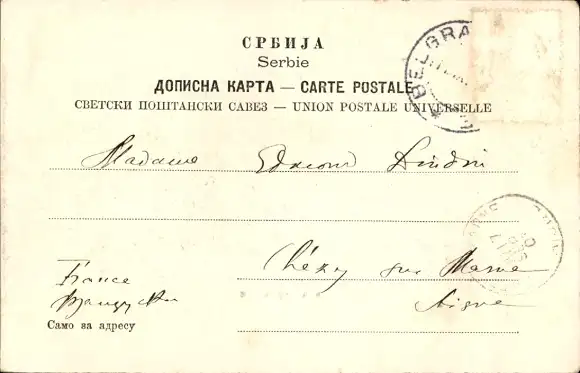 СРБИЈА
Serbie
ДОПИСНА КАРТА — CARTE POSTALE
СВЕТСКИ ПОШТАНСКИ САВЕЗ — UNION POSTALE UNIVERSELLE
BELGRA
Madame Edmond
France
sur Marne
Aisne
Само за адресу